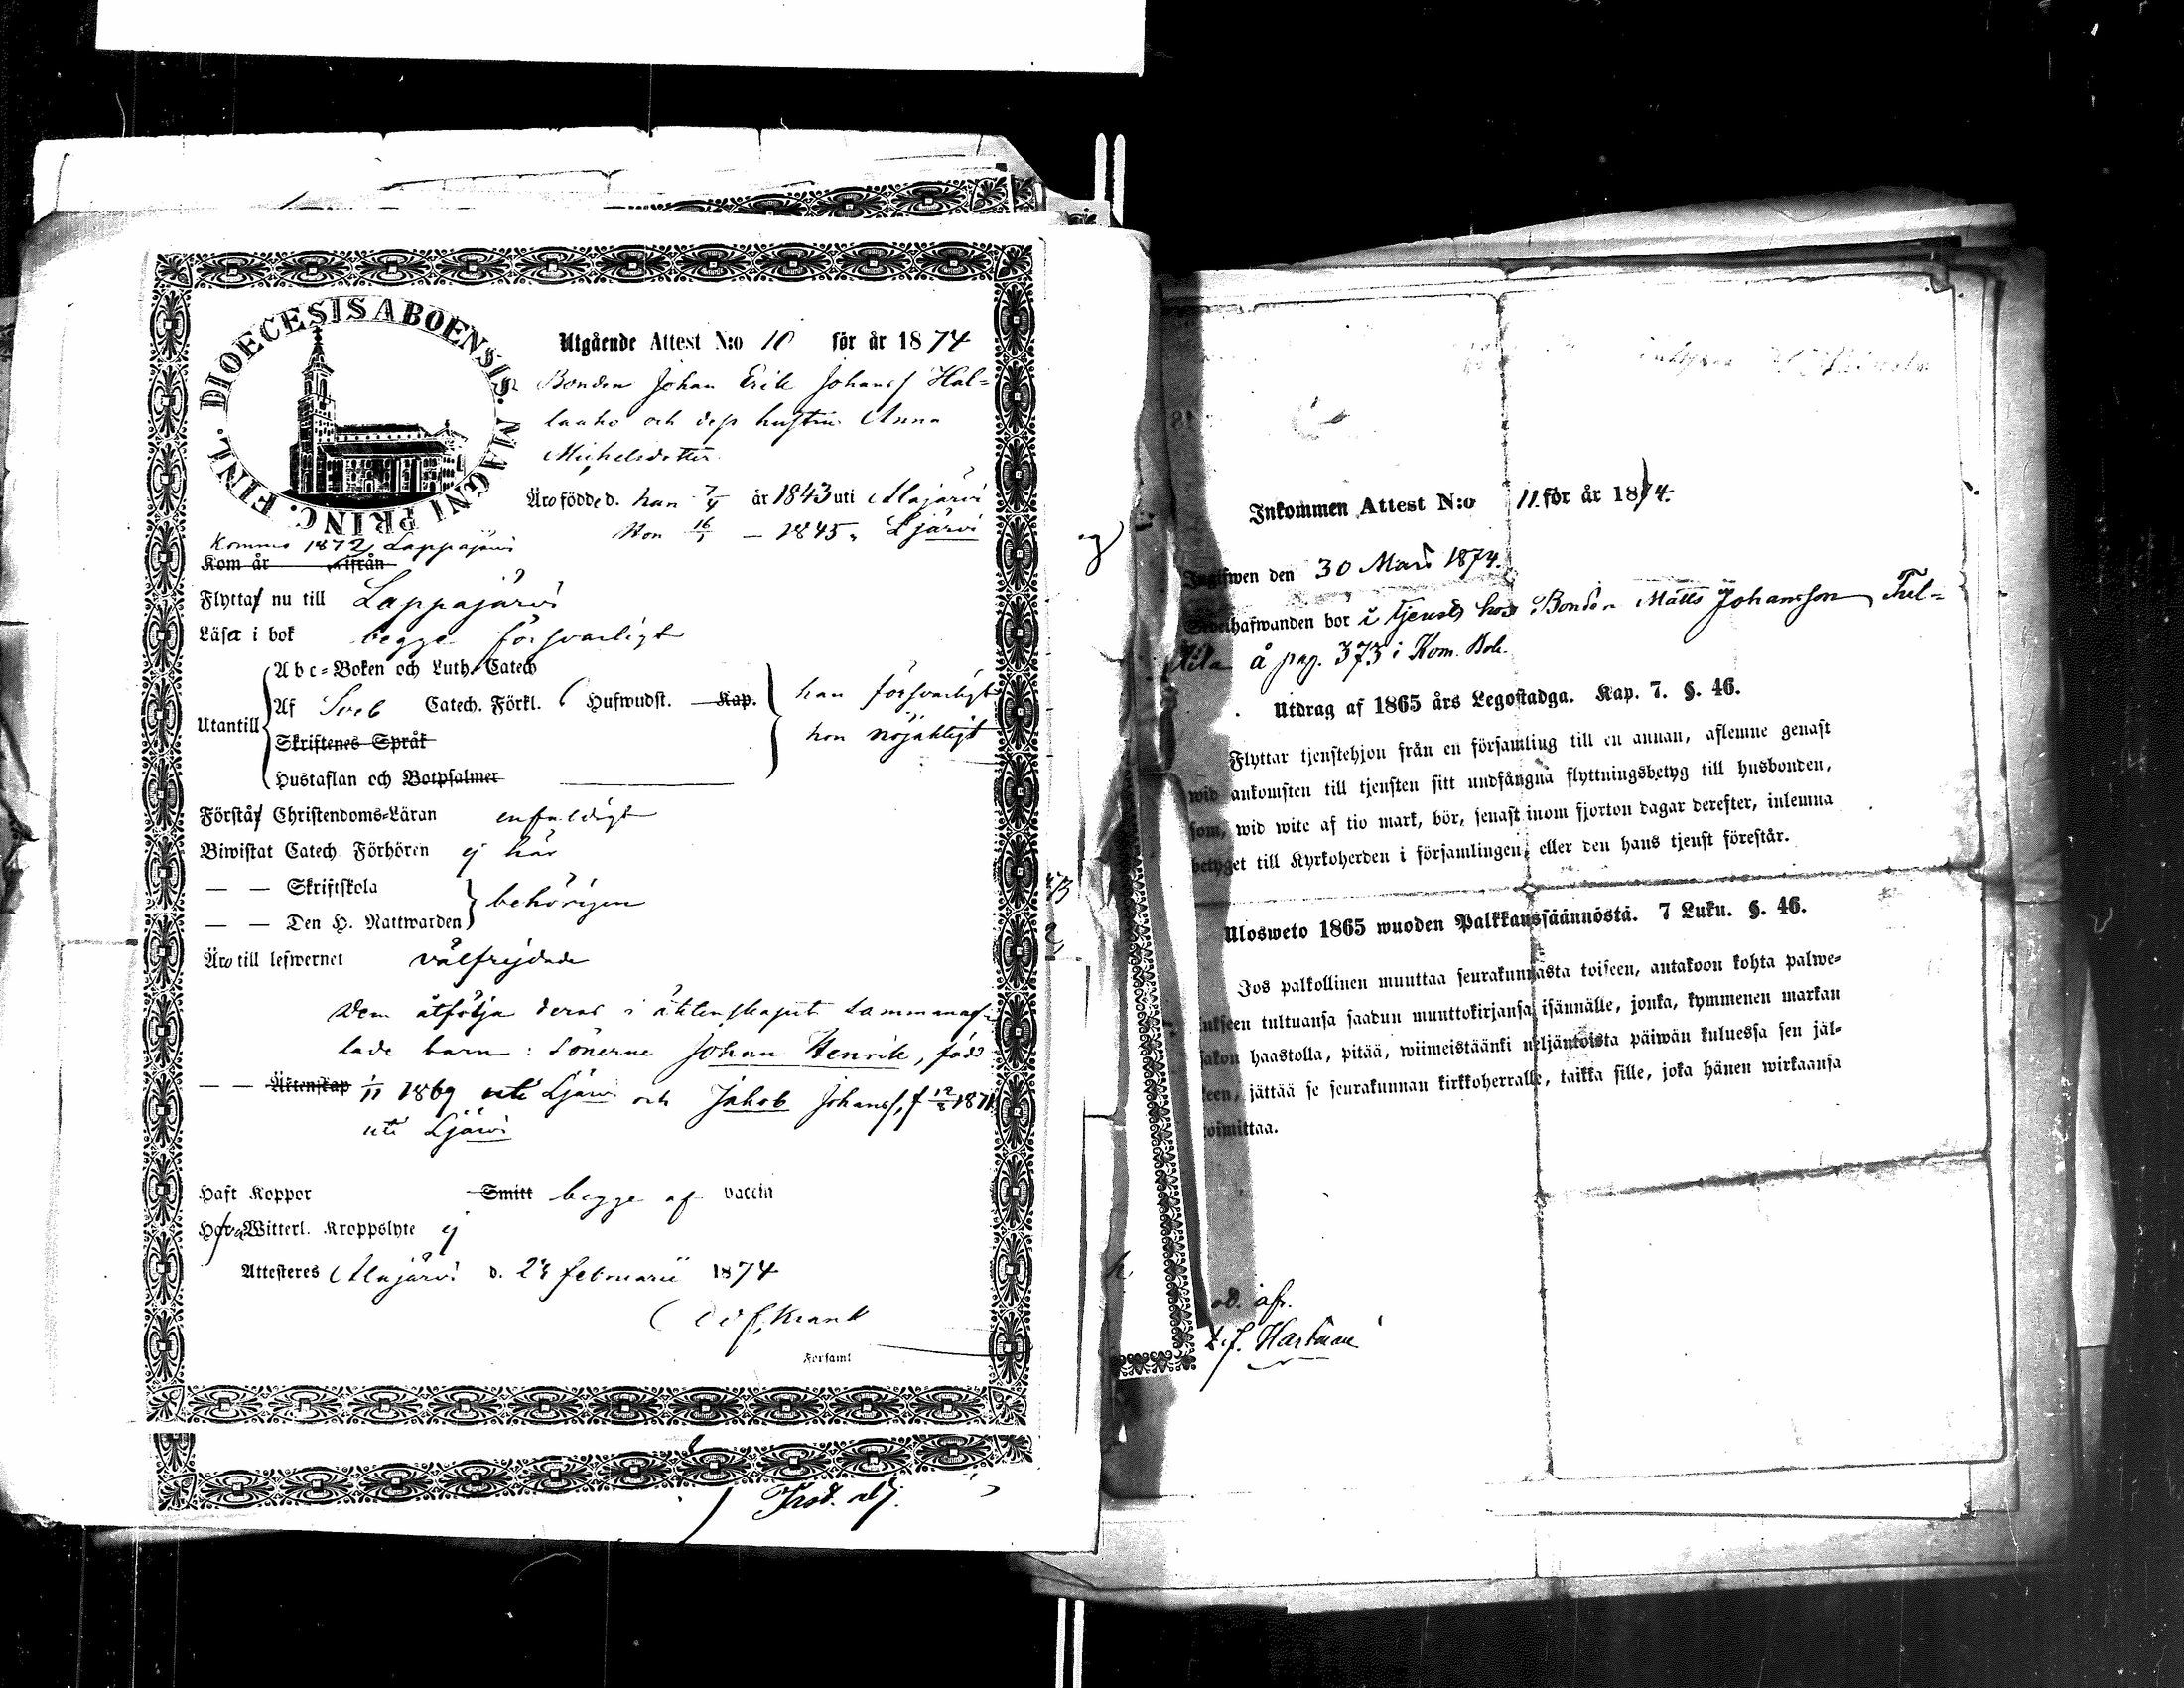 DIOECESIS ABOENSIS. MAGNI PRINC. FINL.
Utgående Attest N:o 10 för år 1874
Bonden Johan Erik Johansf Hal=
laaho och desf hustru Anna
Michelsdotter
Äro födde d. han 7/4 år 1843 uti Alajärvi
Hon 16/1 — 1845 " Ljärvi
Komne 1872, Lappajärvi
Kom år ifrån
Flytta nu till Lappajärvi
Läsa i bok begge försvarligt
Abc=Boken och Luth. Catech
Utantill
Af Sveb Catech. Förkl. 6 Hufwudst. Kap.
han försvarligt
hon nöjaktigt
Skriftenes Språk
Hustaflan och Botpsalmer
Förstå Christendoms=Läran enfaldigt
Biwistat Catech Förhören ej här
— — Skriftskola
behörigen
— — Den H. Nattwarden
Äro till lefwernet välfrejdade
Dem åtfölja deras i äktenskapet sammanaf=
lade barn: Sönerne Johan Henrik, född
— — Äktenskap 1/11 1869 uti Ljärvi och Jakob Johansf, f 12/8 1871
uti Ljärvi
Haft Koppor Smitt begge af vaccin
Hafva Witterl. Kroppslyte ej
Attesteres Alajärvi d. 23 februarii 1874
Krank
Forsaml
Inkommen Attest N:o 11. för år 1874.
Ingifwen den 30 Mars 1874.
Bref­hafwanden bor i tjenst hos Bonden Matts Johansson Ful=
å pag. 373 i Kom. Bok.
Utdrag af 1865 års Legostadga. Kap. 7. §. 46.
Flyttar tjenstehjon från en församling till en annan, aflemne genast
wid ankomsten till tjensten sitt undfångna flyttningsbetyg till husbonden,
som, wid wite af tio mark, bör, senast inom fjorton dagar derefter, inlemna
betyget till Kyrkoherden i församlingen, eller den hans tjenst förestår.
Ulosweto 1865 wuoden Palkkaussäännöstä. 7 Luku. §. 46.
Jos palkollinen muuttaa seurakunnasta toiseen, antakoon kohta palwe=
lukseen tultuansa saadun muuttokirjansa isännälle, jonka, kymmenen markan
sakon haastolla, pitää, wiimeistäänki neljäntoista päiwän kuluessa sen jäl=
keen, jättää se seurakunnan kirkkoherralle, taikka sille, joka hänen wirkaansa
toimittaa.
t.f. Hartman